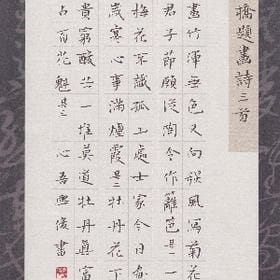 橋題畫詩三首
畫竹渾無色又向風寫菊花
君子節願從陶令作籬笆其一
梅花不識孤山處士家今日畫
歲寒心事滿煙霞其二牡丹花下
貴窮酸苦一堆莫道牡丹真富
占百花魁其三 心吾俊書